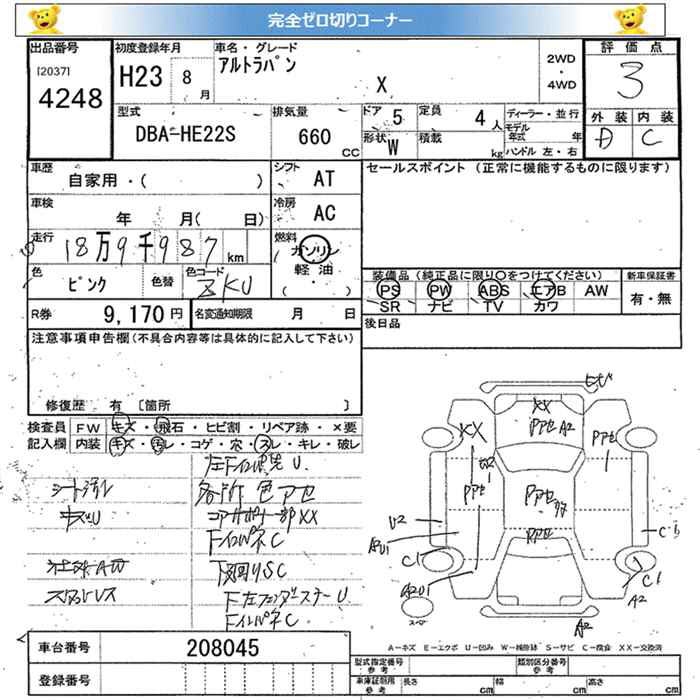 完全ゼロ切りコーナー
出品番号
[2037]
4248
初度登録年月
H23 8月
車名・グレード
アルトラパン
X
2WD
・
4WD
評価点
3
外装 内装
C
型式
DBA-HE22S
排気量
660
CC
ドア 5
定員 4人
形状 W
積載 kg
ディーラー・並行
モデル年式 年
ハンドル 左・右
車歴
自家用・( )
シフト
AT
セールスポイント (正常に機能するものに限ります)
車検
年 月( 日)
冷房
AC
走行
18万9千987km
燃料
ガソリン
軽油
・
( )
色
ピンク
色替
色コード
ZKU
装備品 (純正品に限り〇をつけてください)
PS PW ABS エアB AW
SR ナビ TV カワ
新車保証書
有・無
R券
9,170円
名変通知期限 月 日
後日品
注意事項申告欄(不具合内容等は具体的に記入して下さい)
修復歴 有 [箇所 ]
検査員記入欄
FW キズ・飛石・ヒビ割・リペア跡・×要
内装 キズ・汚レ・コゲ・穴・スレ・キレ・破レ
シート汚レ
キズU
各所 色アセ
コアサポート一部XX
下回りSC
ヒビ
XX
Pアセ A2
XX
Pアセ
U2
Pアセ
Pアセ
Pアセ
C1
C1
A2
A2
スペアー
A-キズ E-エクボ U-凹み W-補修跡 S-サビ C-腐食 XX-交換済
車台番号
208045
登録番号
型式指定番号
参考
類別区分番号
参考
車庫証明用
参考
長さ cm
幅 cm
高さ cm